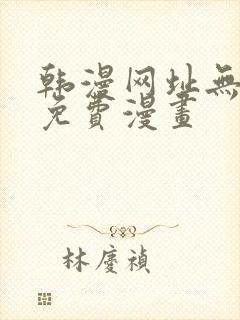 韩漫网址無
免費漫畫
林慶禎